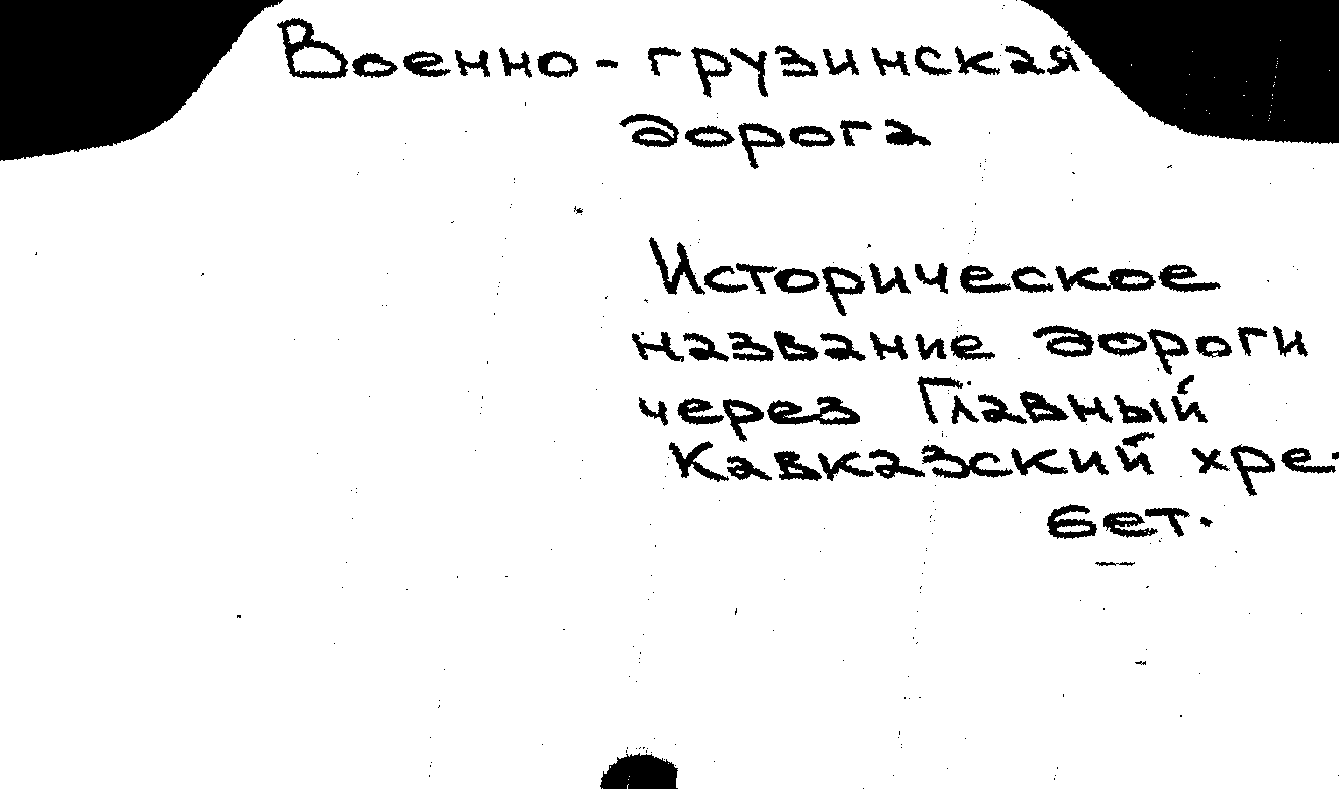 Военно-грузинская
дорога
Историческое
название дороги
через Главный
Кавказский хре-
бет.